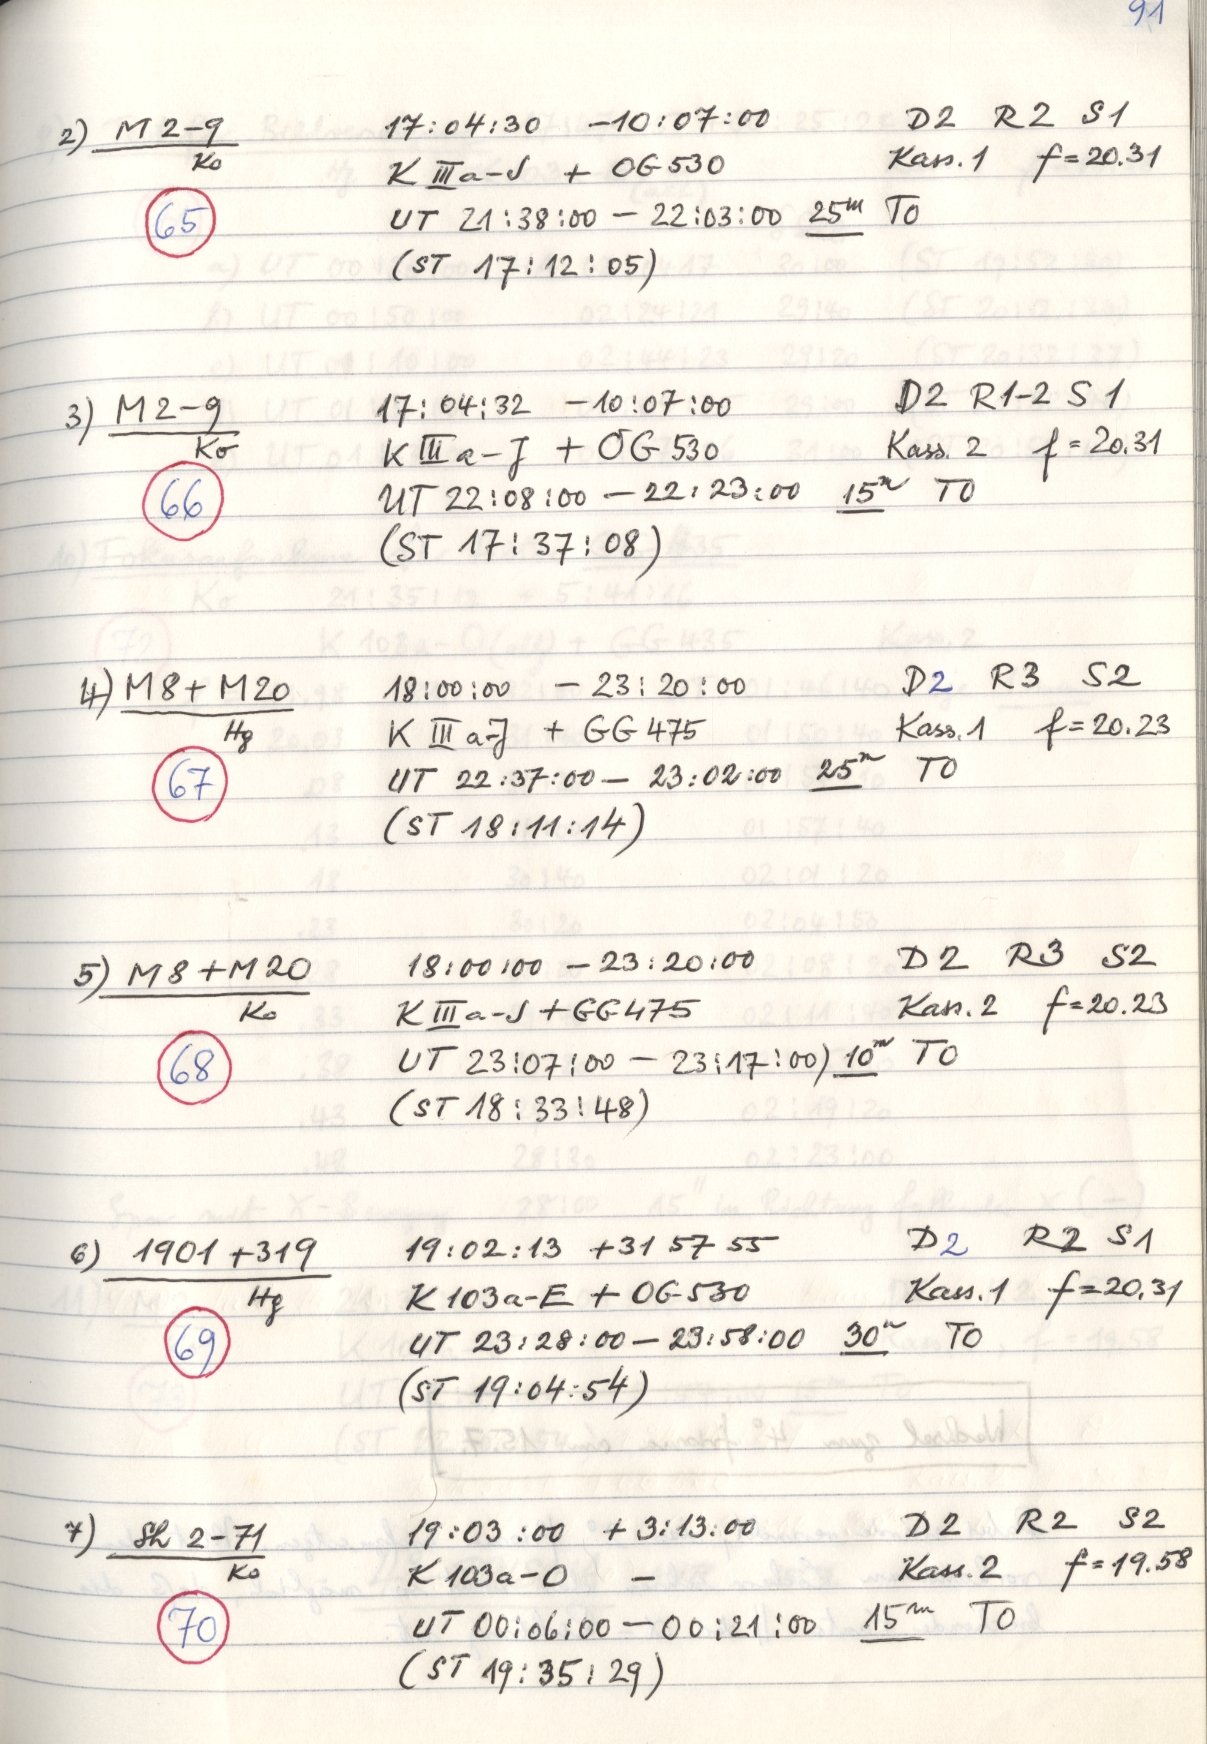 91
2) M2-9 17:04:30 -10:07:00 D2 R2 S1
Ko K IIIa-J + OG530 Kass.1 f=20.31
65 UT 21:38:00 - 22:03:00 25m TO
(ST 17:12:05)
3) M2-9 17:04:32 -10:07:00 D2 R1-2 S1
Ko K IIIa-J + OG530 Kass.2 f=20.31
66 UT 22:08:00 - 22:23:00 15m TO
(ST 17:37:08)
4) M8+M20 18:00:00 - 23:20:00 D2 R3 S2
Hg K IIIa-J + GG475 Kass.1 f=20.23
67 UT 22:37:00 - 23:02:00 25m TO
(ST 18:11:14)
5) M8+M20 18:00:00 - 23:20:00 D2 R3 S2
Ko K IIIa-J + GG475 Kass.2 f=20.23
68 UT 23:07:00 - 23:17:00) 10m TO
(ST 18:33:48)
6) 1901+319 19:02:13 +31 57 55 D2 R2 S1
Hg K103a-E + OG530 Kass.1 f=20.31
69 UT 23:28:00 - 23:58:00 30m TO
(ST 19:04:54)
7) Sh 2-71 19:03:00 +3:13:00 D2 R2 S2
Ko K103a-O - Kass.2 f=19.58
70 UT 00:06:00 - 00:21:00 15m TO
(ST 19:35:29)